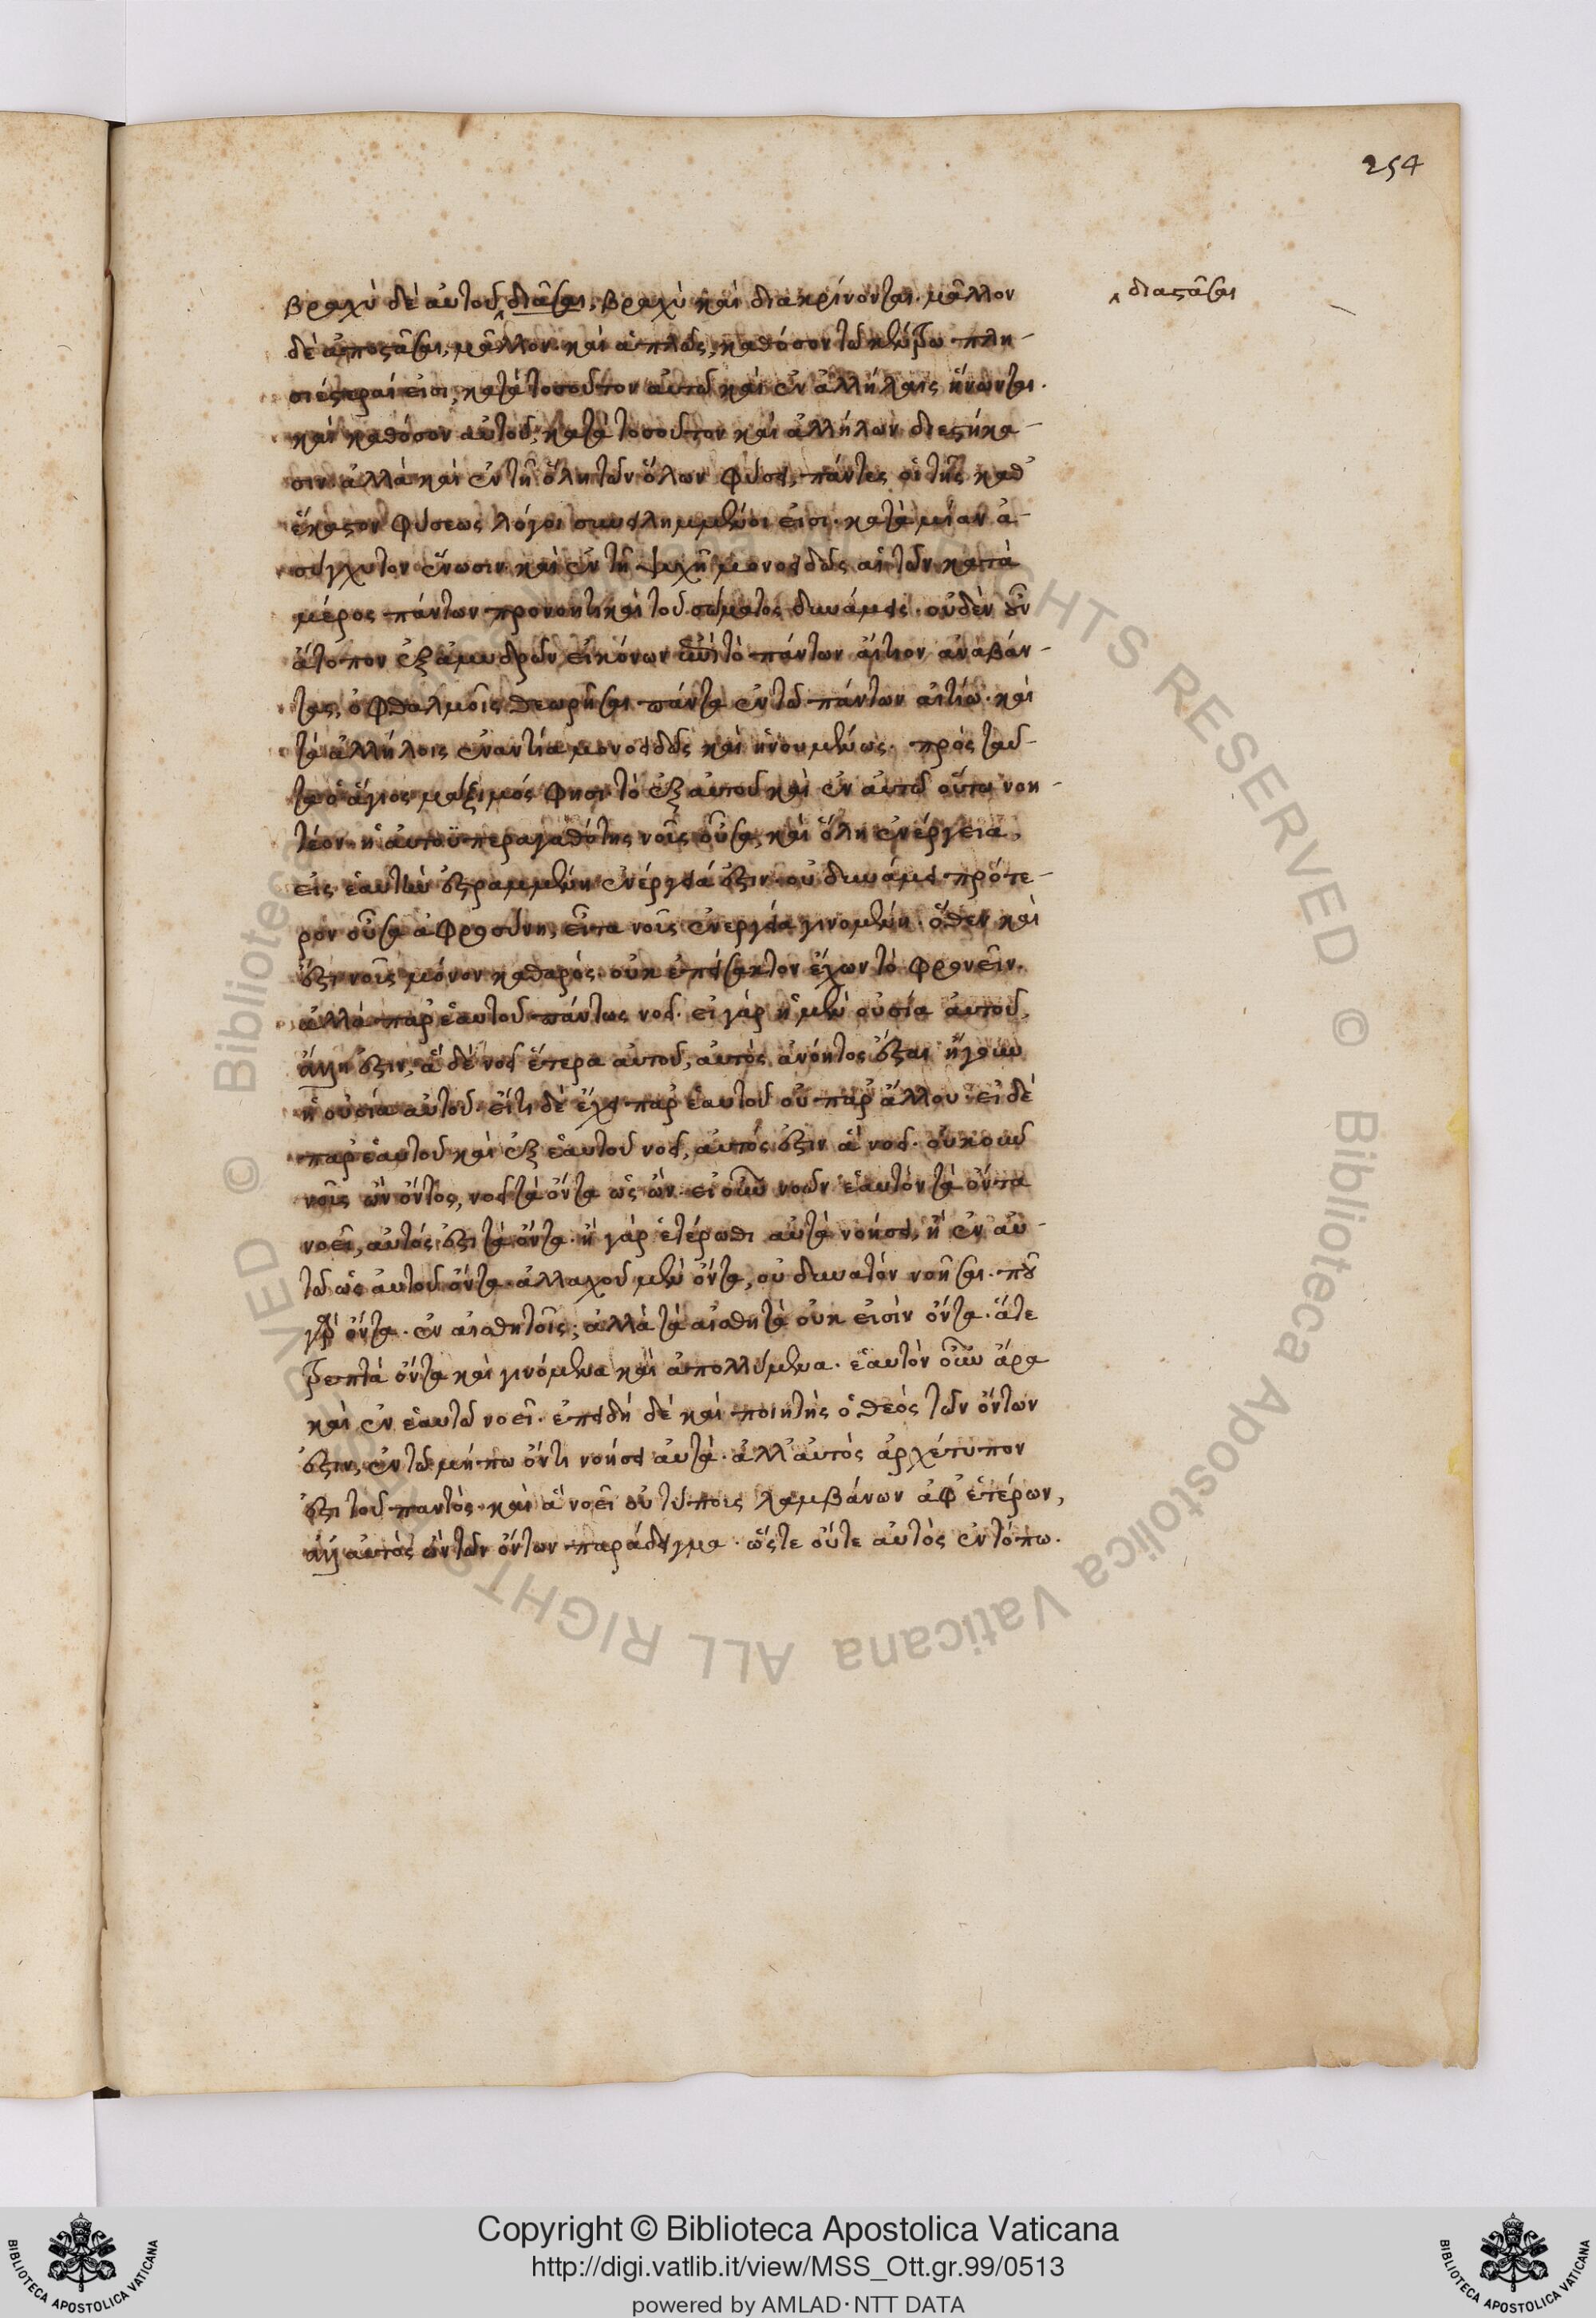 254
βραχὺ δὲ αὐτοῦ ‸ διᾶσαι, βραχὺ καὶ διακρίνονται. μᾶλλον
‸ διαστᾶσαι
δὲ ἀποστᾶσαι, μᾶλλον. καὶ ἁπλῶς, καθόσον τῷ κέντρῳ πλη-
σιέστεραί εἰσι, κατὰ τοσοῦτον αὐτῷ καὶ ἐν ἀλλήλαις ἥνωνται.
καὶ καθόσον αὐτοῦ, κατὰ τοσοῦτον καὶ ἀλλήλων διεστήκα-
σιν ἀλλὰ καὶ ἐν τῇ ὅλῃ τῶν ὅλων φύσει, πάντες οἱ τῆς καθ'
ἕκαστον φύσεως λόγοι συνειλημμένοι εἰσι. κατὰ μίαν ἀ-
σύγχυτον ἕνωσιν. καὶ ἐν τῇ ψυχῇ μονοειδῶς αἱ τῶν κατὰ
μέρος πάντων προνοητικαὶ τοῦ σώματος δυνάμεις. οὐδὲν οὖν
ἄτοπον ἐξ ἀμυδρῶν εἰκόνων ἐπὶ τὸ πάντων αἴτιον ἀναβάν-
τας, ὀφθαλμοῖς θεωρῆσαι πάντα ἐν τῷ πάντων αἰτίῳ. καὶ
τὰ ἀλλήλοις ἐναντία μονοειδῶς καὶ ἡνουμένως. πρὸς ταῦ-
τα ὁ ἅγιος μάξιμός φησι τὸ ἐξ αὐτοῦ καὶ ἐν αὐτῷ οὕτω νοη-
τέον. ἡ αὐτοϋπεραγαθότης νοῦς οὖσα, καὶ ὅλη ἐνέργεια,
εἰς ἑαυτὴν ἐστραμμένη ἐνέργειά ἐστιν. οὐ δυνάμει πρότε-
ρον οὖσα ἀφροσύνη, εἶτα νοῦς ἐνεργείᾳ γινομένη. ὅθεν καὶ
ἔστι νοῦς μόνον καθαρός. οὐκ ἐπείσακτον ἔχων τὸ φρονεῖν.
ἀλλὰ παρ' ἑαυτοῦ πάντως νοεῖ. εἰ γὰρ ἡ μὲν οὐσία αὐτοῦ,
ἄλλη ἐστιν, ἃ δὲ νοεῖ ἕτερα αὐτοῦ, αὐτὸς ἀνόητος ἔσται ἤγουν
ἡ οὐσία αὐτοῦ. εἴ τι δὲ ἔχει παρ' ἑαυτοῦ οὐ παρ' ἄλλου. εἰ δὲ
παρ' ἑαυτοῦ καὶ ἐξ ἑαυτοῦ νοεῖ, αὐτός ἐστιν ἃ νοεῖ. οὐκοῦν
νοῦς ὢν ὄντος, νοεῖ τὰ ὄντα ὡς ὤν. εἰ οὖν νοῶν ἑαυτὸν τὰ ὄντα
νοεῖ, αὐτός ἐστι τὰ ὄντα. ἢ γὰρ ἑτέρωθι αὐτὰ νοήσει, ἢ ἐν αὐ-
τῷ ὡς αὐτοῦ ὄντα. ἀλλαχοῦ μὲν ὄντα, οὐ δυνατὸν νοῆσαι. ποῦ
γὰρ ὄντα. ἐν αἰσθητοῖς; ἀλλὰ τὰ αἰσθητὰ οὐκ εἰσὶν ὄντα. ἅτε
τρεπτὰ ὄντα καὶ γινόμενα καὶ ἀπολλύμενα. ἑαυτὸν οὖν ἄρα
καὶ ἐν ἑαυτῷ νοεῖ. ἐπειδὴ δὲ καὶ ποιητὴς ὁ θεὸς τῶν ὄντων
ἐστιν, ἐν τῷ μήπω ὄντι νοήσει αὐτὰ. ἀλλ' αὐτὸς ἀρχέτυπον
ἐστι τοῦ παντός. καὶ ἃ νοεῖ οὐ τύποις λαμβάνων ἀφ' ἑτέρων,
ἀλλ' αὐτὸς ὢν τῶν ὄντων παράδειγμα. ὥστε οὔτε αὐτὸς ἐν τόπῳ.
© Biblioteca Apostolica Vaticana ALL RIGHTS RESERVED
Copyright © Biblioteca Apostolica Vaticana
http://digi.vatlib.it/view/MSS_Ott.gr.99/0513
powered by AMLAD·NTT DATA
BIBLIOTECA APOSTOLICA VATICANA
BIBLIOTECA APOSTOLICA VATICANA